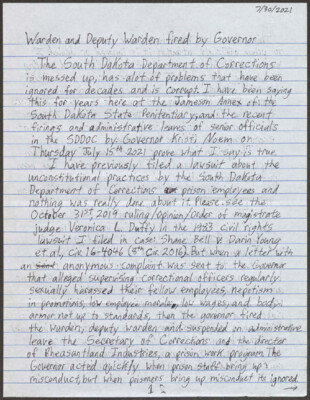 7/30/2021
Warden and Deputy Warden fired by Governor
The South Dakota Department of Corrections
is messed up, has alot of problems that have been
ignored for decades and is corrupt. I have been saying
this for years here at the Jameson Annex of the
South Dakota State Penitentiary; and the recent
firings and administrative leaves of senior officials
in the SDDOC by Governor Kristi Noem on
Thursday July 15th 2021 prove what I say is true.
I have previously filed a lawsuit about the
unconstitutional practices by the South Dakota
Department of Corrections prison employees and
nothing was really done about it. Please see the
October 31st, 2019 ruling/opinion/order of magistrate
judge Veronica L. Duffy in the 1983 civil rights
lawsuit I filed in case: Shane Bell v. Darin Young
et al, Civ. 16-4046 (8th Cir. 2016). But when a letter with
an anonymous complaint was sent to the Governor
that alleged supervising correctional officers regularly
sexually harrassed their fellow employees, nepotism
in promotions, low employee morale, low wages, and body
armor not up to standards, then the governor fired
the warden, deputy warden and suspended on administrative
leave the Secretary of Corrections and the director
of Pheasantland Industries, a prison work program. The
Governor acted quickly when prison staff bring up
misconduct, but when prisoners bring up misconduct its ignored.
1